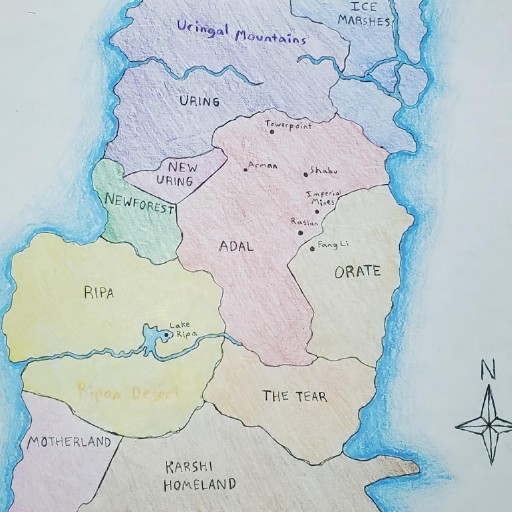 ICE
MARSHES
Uringal Mountains
URING
Towerpoint
NEW
URING
Arman
Shabu
Imperial
Mines
NEWFOREST
Ruslan
Fang Li
ADAL
ORATE
RIPA
Lake
Ripa
Ripan Desert
THE TEAR
N
MOTHERLAND
KARSHI
HOMELAND